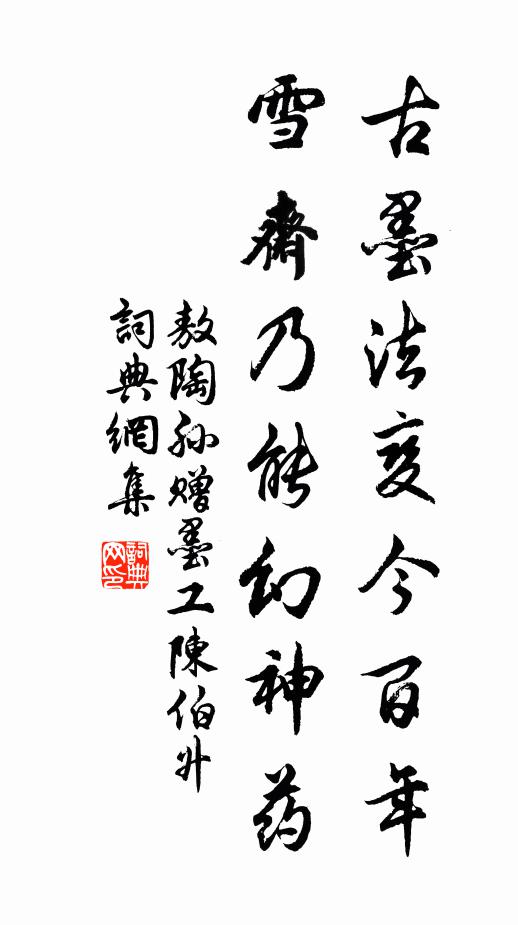 古墨法变今百年
雪齋乃能幻神药
敖陶孙赠墨工陳伯升
詞典網集
詞典网印